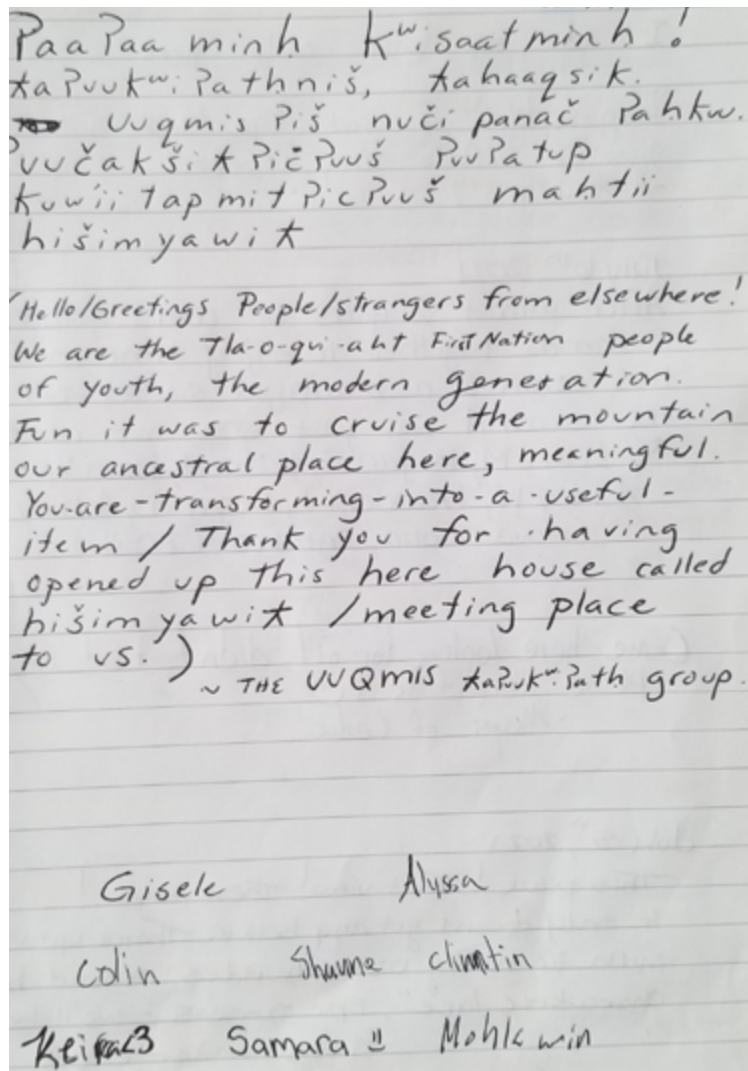 ʔaaʔaa minḥ kʷisaat minḥ !
ƛaʔuukʷiʔatḥniš, ƛahaaqsiƛ.
uuqmis ʔiš nučí panač ʔaḥkuu.
ʔuučakšiƛʔičʔuuš ʔuuʔatup
kuwíítapmitʔicʔuuš maḥtii
hišimyawiƛ
(Hello/Greetings People/strangers from elsewhere!
We are the Tla-o-qui-aht First Nation people
of youth, the modern generation.
Fun it was to cruise the mountain
our ancestral place here, meaningful.
You-are-transforming-into-a-useful-
item / Thank you for having
opened up this here house called
hišimyawiƛ /meeting place
to us.)
~ THE UUQMIS ƛaʔuukʷiʔatḥ group.
Gisele Alyssa
Colin Shaune
Keira<3 Samara Mohkwin